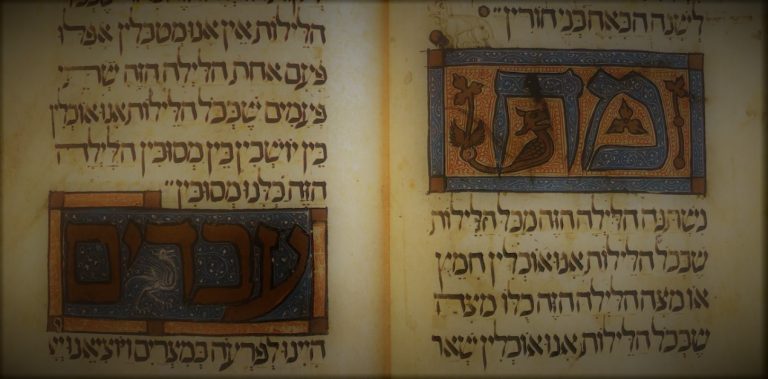 לשנה הבאה בני חורין
מה
נשתנה הלילה הזה מכל הלילות
שבכל הלילות אנו אוכלין חמץ
או מצה הלילה הזה כלו מצה
שבכל הלילות אנו אוכלין שאר
הלילות אין אנו מטבלין אפלו
פעם אחת הלילה הזה שתי
פעמים שבכל הלילות אנו אוכלין
בין יושבין בין מסובין הלילה
הזה כלנו מסובין
עבדים
היינו לפרעה במצרים ויוציאנו ייי